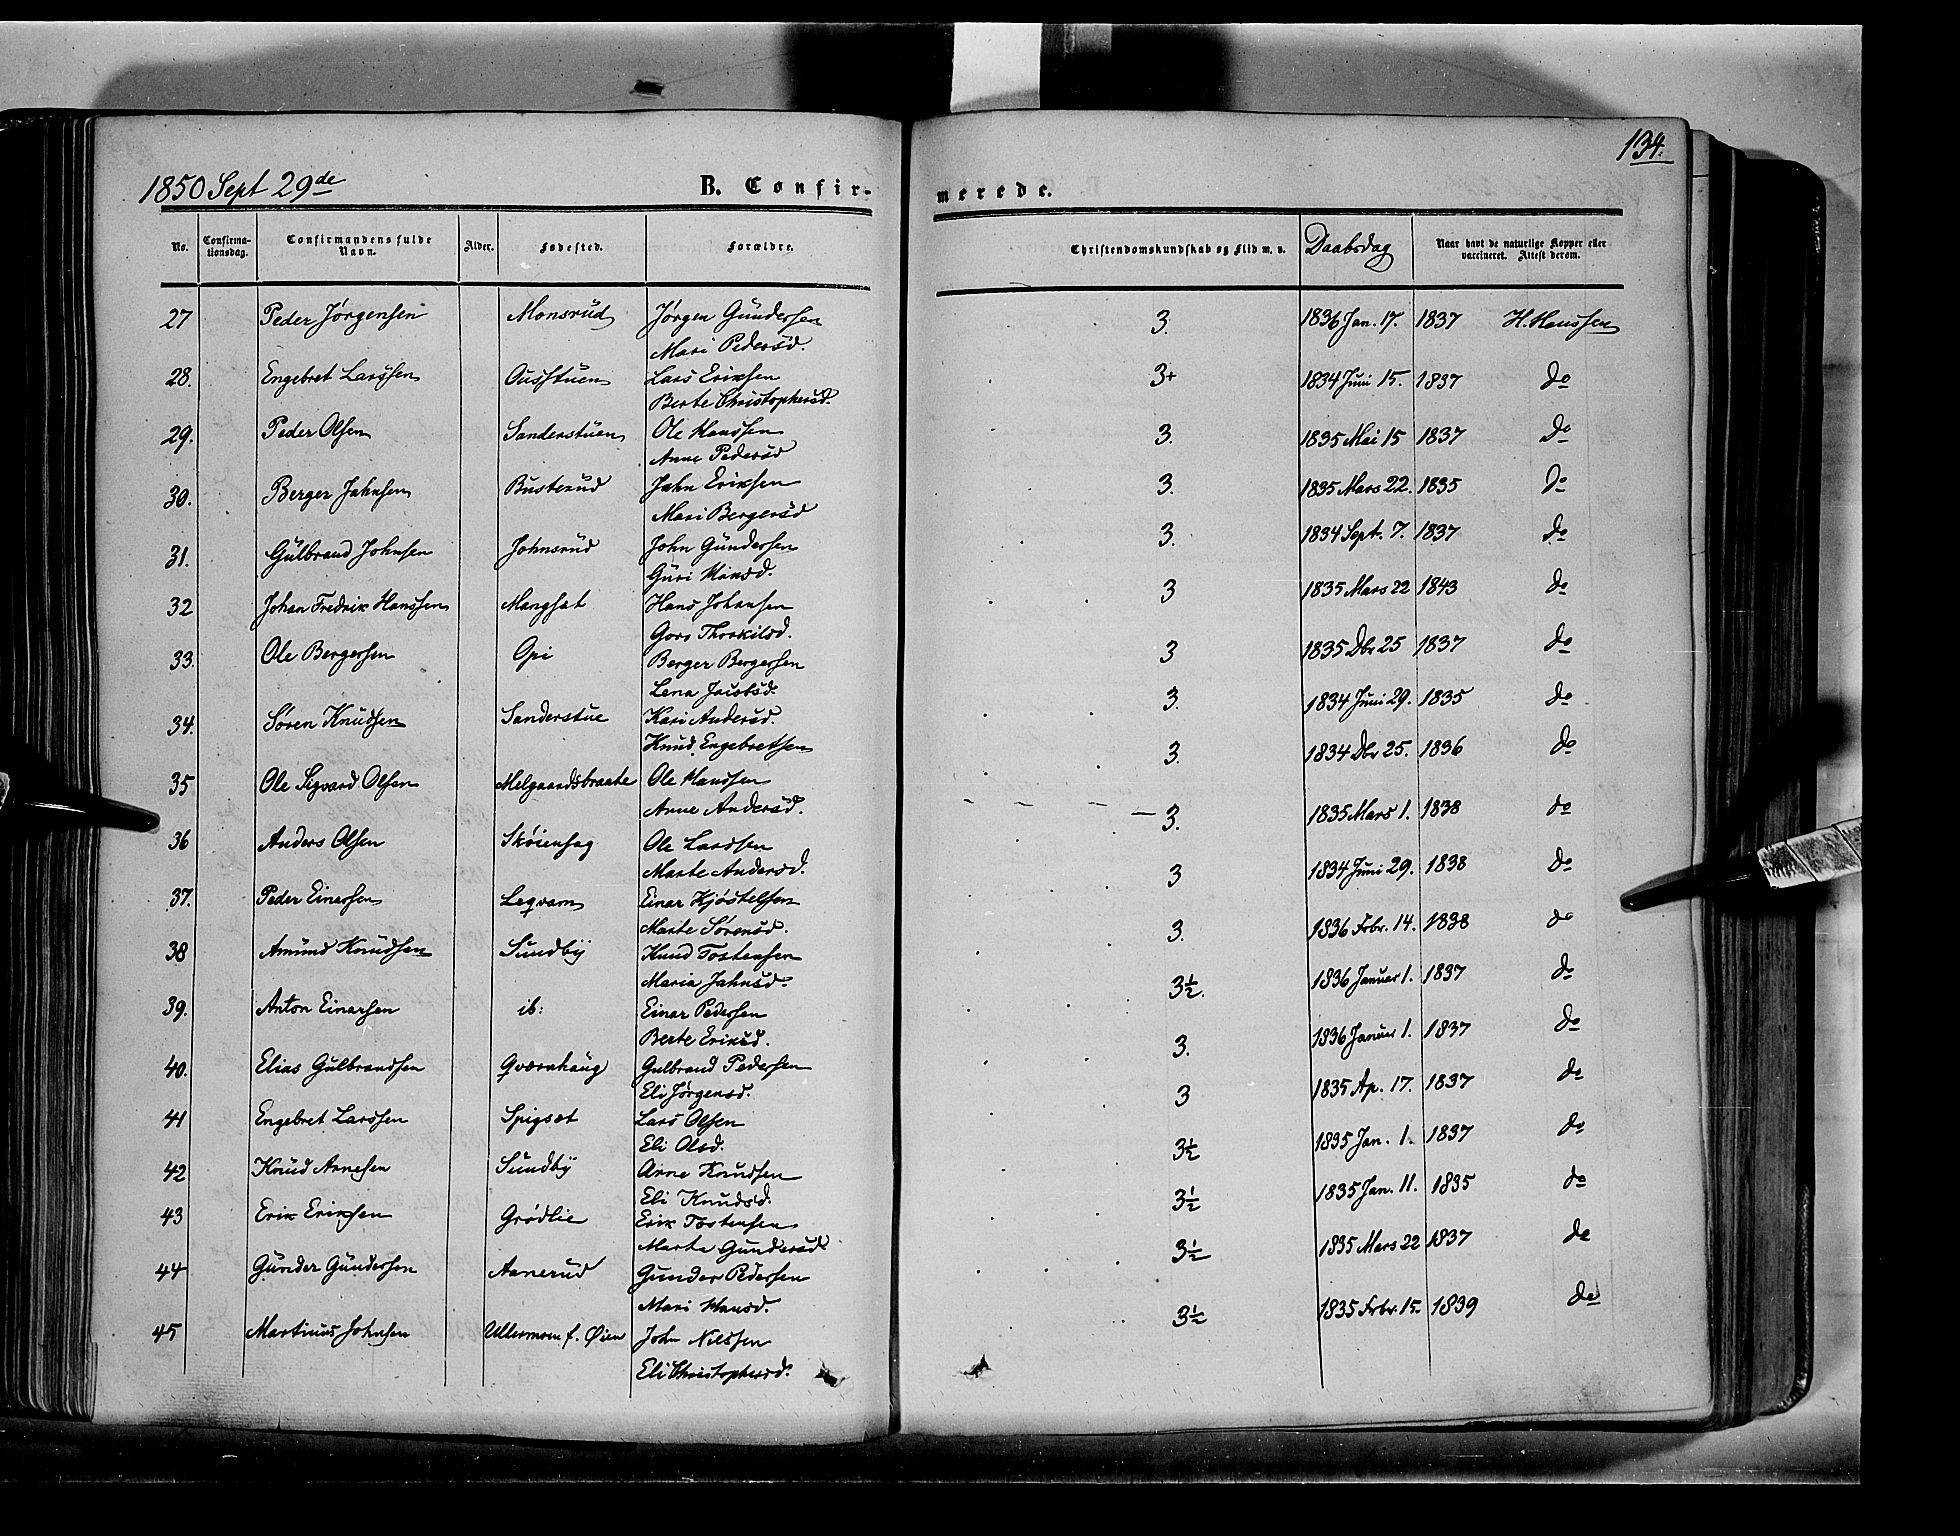 134.
1850 Sept 29de B. Confirmerede.
No. Confirmationsdag. Confirmandens fulde Navn. Alder. Fødested. Forældre. Christendomskundskab og Flid m. v. Daabsdag Naar havt de naturlige Kopper eller vaccineret. Attest derom.
27 Peder Jørgensen Monsrud Jørgen Gundersen 3. 1836 Jan. 17. 1837 H. Hanssen
Mari Pedersd.
28. Engebret Larssen Ousstuen Lars Eriksen 3+ 1834 Juni 15. 1837 do
Berte Christophersd.
29. Peder Olsen Sanderstuen Ole Hanssen 3. 1835 Mai 15 1837 do
Anne Pedersd
30. Berger Jahnsen Busterud Jahn Eriksen 3. 1835 Mars 22. 1835 do
Mari Bergersd
31. Gulbrand Johnsen Johnsrud John Gundersen 3. 1834 Sept. 7. 1837 do
Guri Hansd.
32 Johan Fredrik Hanssen Mangset Hans Johansen 3 1835 Mars 22 1843 do
Goro Thorkilsd.
33. Ole Bergersen Opi Berger Bergersen 3 1835 Dbr 25 1837 do
Lena Jacobsd.
34. Søren Knudsen Sanderstue Kari Andersd. 3. 1834 Juni 29. 1835 do
Knud Engebretsen
35 Ole Sigvard Olsen Melgaardsbraate Ole Hanssen 3. 1834 Dbr 25. 1836 do
Anne Andersd.
36 Anders Olsen Skøienhag Ole Larssen — 3. 1835 Mars 1. 1838 do
Marte Andersd.
37. Peder Einersen Leqvam Einar Kjøstelsen 3 1834 Juni 29. 1838 do
Marte Sørensd.
38 Amund Knudsen Sundby Knud Tostensen 3. 1836 Febr. 14. 1838 do
Maria Jahnsd.
39. Anton Einarsen ib: Einar Pedersen 3½. 1836 Januar 1. 1837 do
Berte Eriksd.
40. Elias Gulbrandsen Qværnhaug Gulbrand Pedersen 3. 1836 Januar 1. 1837 do
Eli Jørgensd.
41 Engebret Larssen Spigset Lars Olsen 3 1835 Ap. 17. 1837 do
Eli Olsd.
42 Knud Arnesen Sundby Arne Knudsen 3½ 1835 Jan. 1. 1837 do
Eli Knudsd.
43 Erik Eriksen Grødlie Erik Tostensen 3½ 1835 Jan. 11. 1835 do
Marte Gundersd
44 Gunder Gundersen Aanerud Gunder Pedersen 3½ 1835 Mars 22 1837 do
Mari Hansd.
45 Martinus Johnsen Ullermoen f. Øien John Nilssen 3½ 1835 Febr. 15. 1839 do
Eli Christophersd.